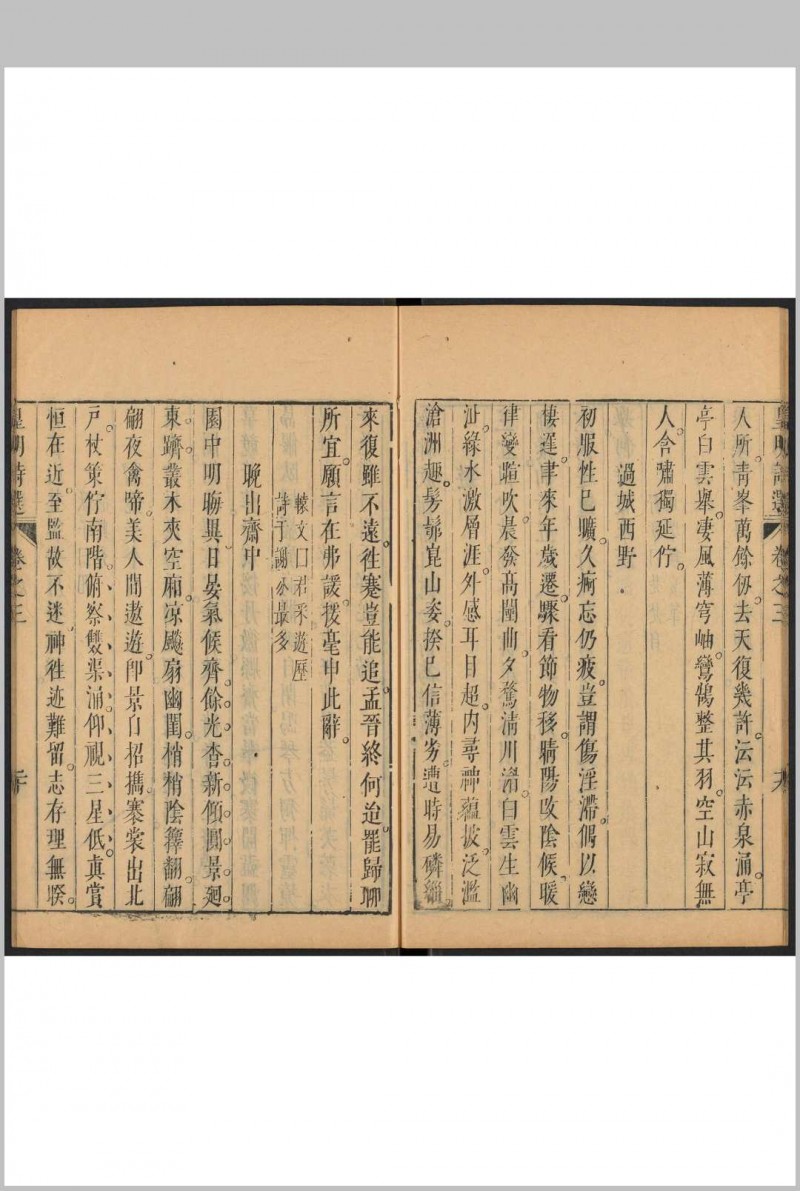 人所青峯萬餘仞去天復幾許沄沄赤泉涌亭
亭白雲舉淒風薄穹岫鸞鵠整其羽空山寂無
人含嘯獨延佇
過城西野
初服性已曠久痾忘仍疲豈謂傷淫滯偶以戀
棲遲聿來年歲遷驟看節物移晴陽改陰候暖
律變暄吹晨發高闉曲夕騖清川湄白雲生幽
沚緣水激層涯外感耳目超內尋神蘊披泛濫
滄洲趣髣髴崑山委揆已信薄劣遭時易磷緇
來復雖不遠往蹇豈能追孟晉終何迨罷歸聊
所宜願言在弗諼援毫申此辭
轅文曰君采遊歷
詩于謝亦最多
晚出齋中
園中明晦異日晏氣候齊餘光杳新傾圓景廻
東躋叢木夾空廂凉飈扇幽閨梢梢陰籜翻翩
翩夜禽啼美人間遨遊即景自招攜褰裳出北
戶杖策佇南階俯察雙渠涌仰視三星低真賞
恒在近至監故不迷神徃迹難留志存理無睽
皇明詩選 卷之三